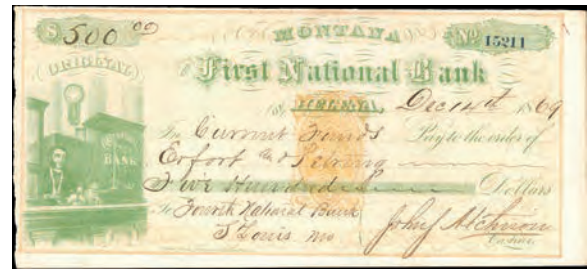 $ 500 00
MONTANA
No 15211
ORIGINAL
First National Bank
of HELENA, Dec 14th 1869
In Current Funds Pay to the order of
Erfort and Petring
BANK
Five Hundred Dollars
To Fourth National Bank
St Louis Mo
Cashier